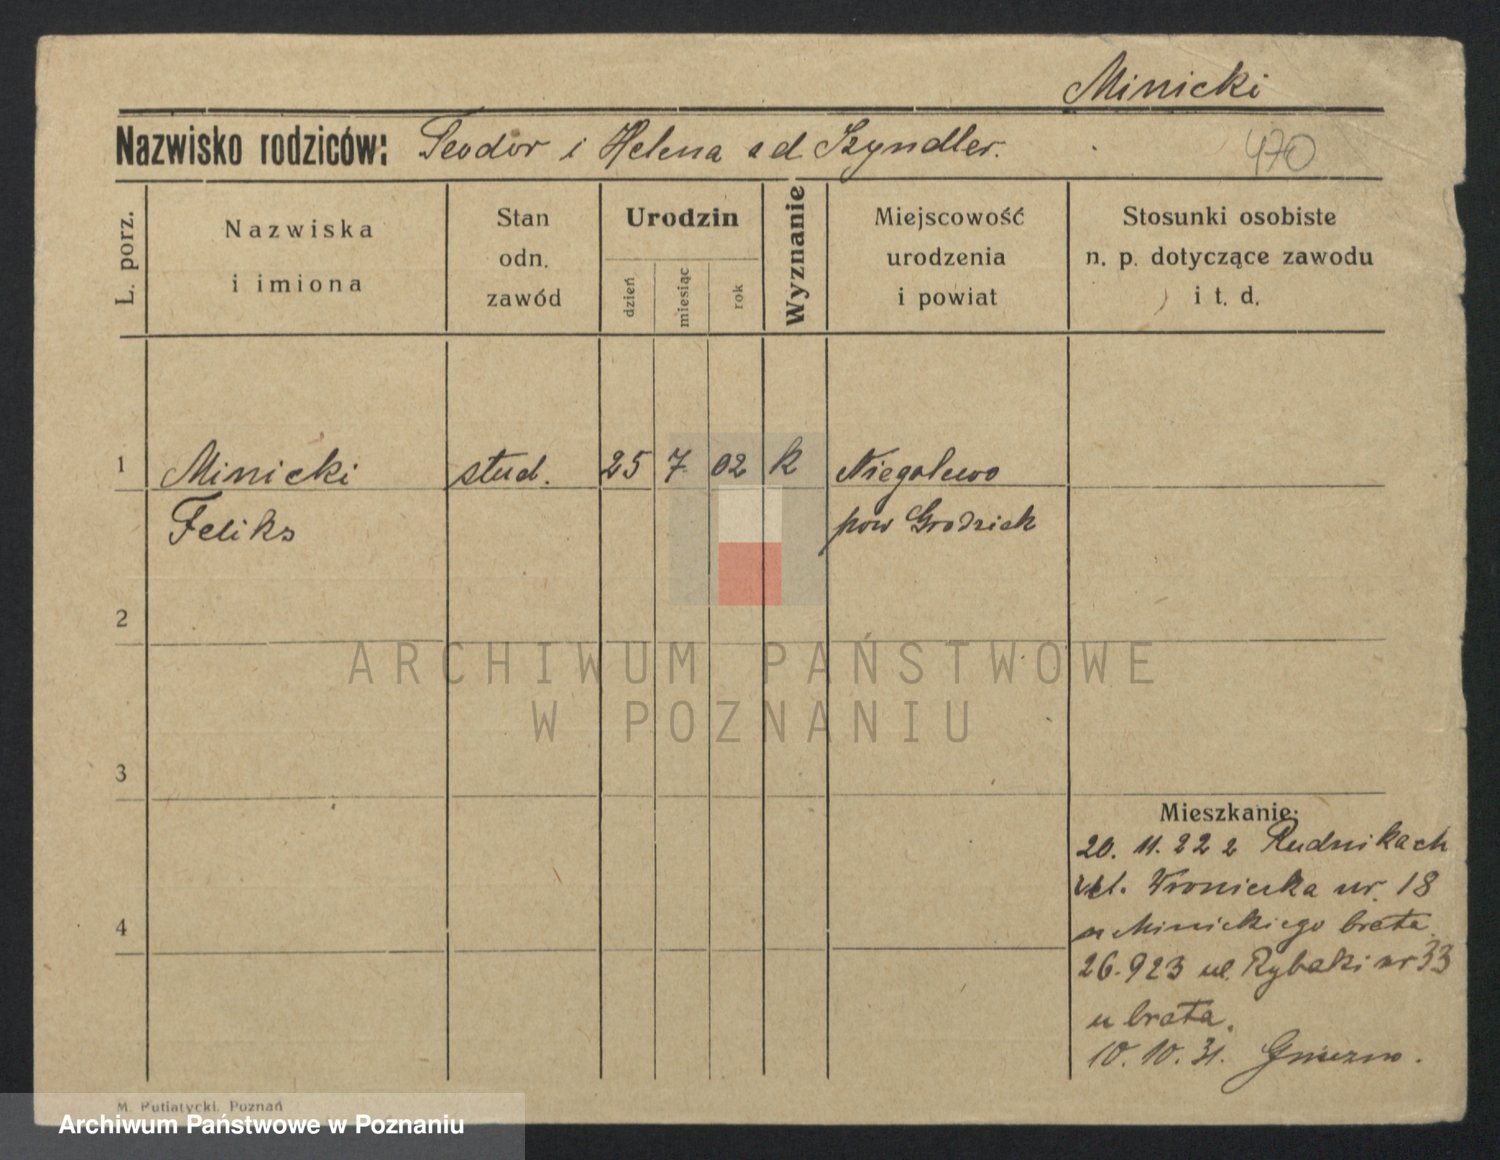 Minicki
Nazwisko rodziców: Teodor i Helena z d. Szyndler.
470
L. porz.
Nazwiska
i imiona
Stan
odn.
zawód
Urodzin
dzień
miesiąc
rok
Wyznanie
Miejscowość
urodzenia
i powiat
Stosunki osobiste
n. p. dotyczące zawodu
i t. d.
1 Minicki stud. 25 7. 02 k Niegolewo
Feliks pow Grodzisk
2
ARCHIWUM PAŃSTWOWE
W POZNANIU
3
Mieszkanie:
20. 11. 22 z Rudnikach
ul. Wroniecka nr. 18
u Minickiego brata.
4
26. 923 ul. Rybaki nr 33
u brata.
10. 10. 31. Gniezno.
M. Putiatycki. Poznań
Archiwum Państwowe w Poznaniu